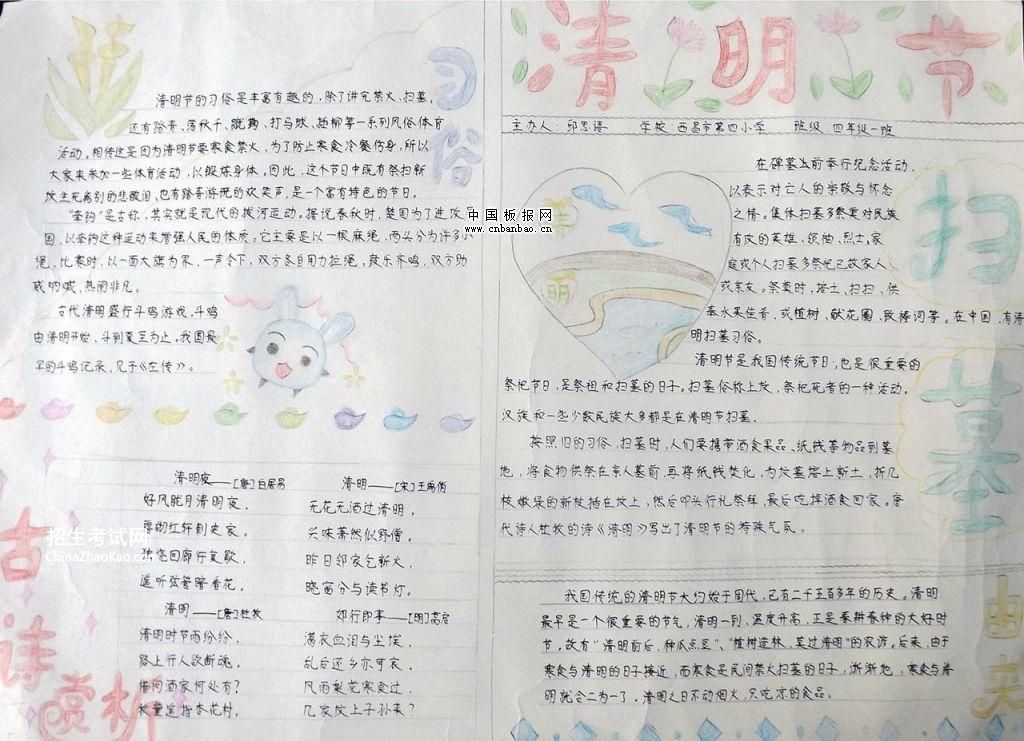 清明节
主办人：邱思语 学校：西昌市第四小学 班级：四年级一班
习俗
清明节的习俗是丰富有趣的，除了讲究禁火、扫墓，
还有踏青、荡秋千、蹴鞠、打马球、插柳等一系列风俗体育
活动。相传这是因为清明节要寒食禁火，为了防止寒食冷餐伤身，所以
大家来参加一些体育活动，以锻炼身体。因此，这个节日中既有祭扫新
坟生死离别的悲酸泪，也有踏青游玩的欢笑声，是一个富有特色的节日。
"牵钩"是古称，其实就是现代的拔河运动。据说春秋时，楚国为了进攻
国，以牵钩这种运动来增强人民的体质。它主要是以一根麻绳，两头分为许多小
绳，比赛时，以一面大旗为界，一声令下，双方各自用力拉绳，鼓乐齐鸣，双方助
威呐喊，热闹非凡。
古代清明盛行斗鸡游戏，斗鸡
由清明开始，斗到夏至为止。我国最
早的斗鸡记录，见于《左传》。
中国板报网
www.cnbanbao.cn
清
明
扫墓
在碑墓之前举行纪念活动，
以表示对亡人的崇敬与怀念
之情。集体扫墓多祭奠对民族
有成的英雄、领袖、烈士。家
庭或个人扫墓多祭祀已故家人、
或亲友。祭奠时，培土、扫扫、供
奉水果佳肴，或植树、献花圈、致悼词等。在中国，有清
明扫墓习俗。
清明节是我国传统节日，也是很重要的
祭祀节日，是祭祖和扫墓的日子。扫墓俗称上坟，祭祀死者的一种活动。
汉族和一些少数民族大多都是在清明节扫墓。
按照旧的习俗，扫墓时，人们要携带酒食果品、纸钱等物品到墓
地，将食物供祭在亲人墓前，再将纸钱焚化，为坟墓培上新土，折几
枝嫩绿的新枝插在坟上，然后叩头行礼祭拜，最后吃掉酒食回家。唐
代诗人杜牧的诗《清明》写出了清明节的特殊气氛。
古诗赏析
清明夜——[唐]白居易
好风胧月清明夜，
碧砌红轩刺史家。
独绕回廊行复歇，
遥听弦管暗看花。
清明——[宋]王禹偁
无花无酒过清明，
兴味萧然似野僧。
昨日邻家乞新火，
晓窗分与读书灯。
清明——[唐]杜牧
清明时节雨纷纷，
路上行人欲断魂。
借问酒家何处有？
牧童遥指杏花村。
郊行即事——[明]高启
满衣血泪与尘埃，
乱后还乡亦可哀。
风雨梨花寒食过，
几家坟上子孙来？
招生考试网
ChinaZhaoKao.com
由来
我国传统的清明节大约始于周代，已有二千五百多年的历史。清明
最早是一个很重要的节气，清明一到，温度升高，正是春耕春种的大好时
节，故有"清明前后，种瓜点豆"、"植树造林，莫过清明"的农谚。后来，由于
寒食与清明的日子接近，而寒食是民间禁火扫墓的日子，渐渐地，寒食与清
明就合二为一了，清明之日不动烟火，只吃凉的食品。